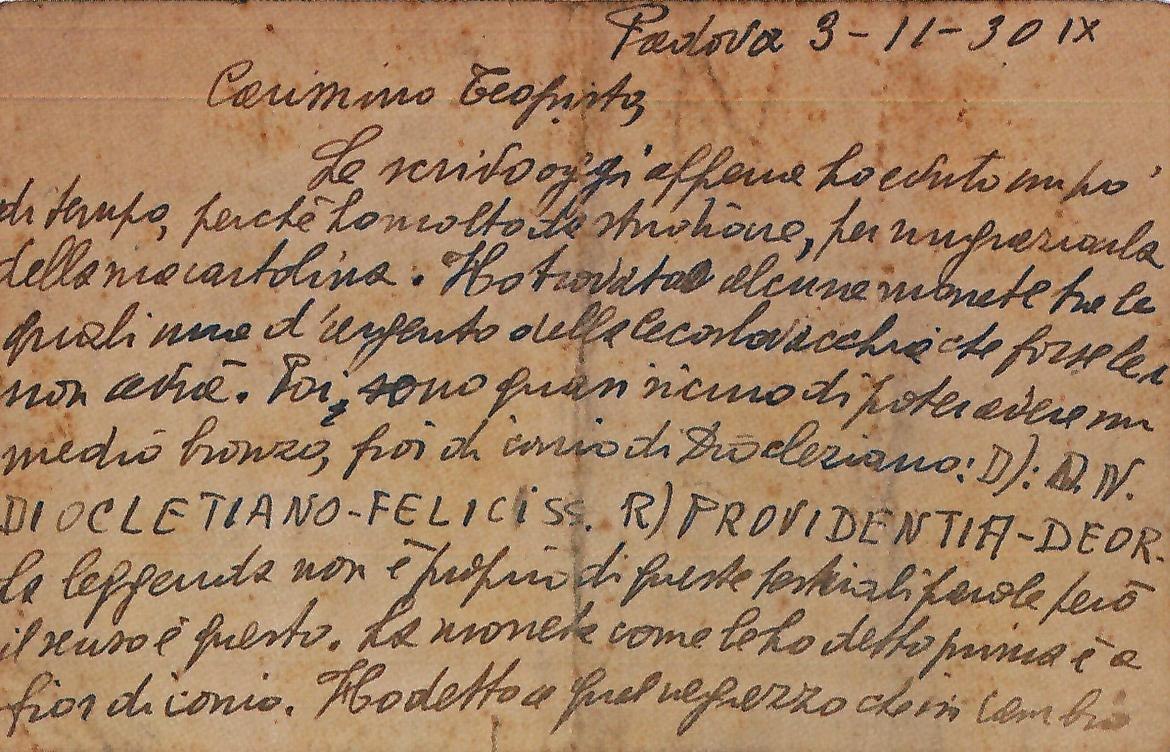 Padova 3-11-30 IX
Carissimo Teofisto,
Le scrivo oggi appena ho avuto un po'
di tempo, perchè ho molto da studiare, per ringraziarla
della sua cartolina. Ho trovato alcune monete tra le
quali una d'argento della Cecoslovacchia che forse lei
non avrà. Poi, sono quasi sicuro di poter avere un
medio bronzo, fior di conio di Diocleziano: D): D.N.
DIOCLETIANO-FELICISS. R) PROVIDENTIA-DEOR-
La leggenda non è proprio di queste testuali parole però
il senso è questo. La moneta come le ho detto prima è a
fior di conio. Ho detto a quel ragazzo che in cambio